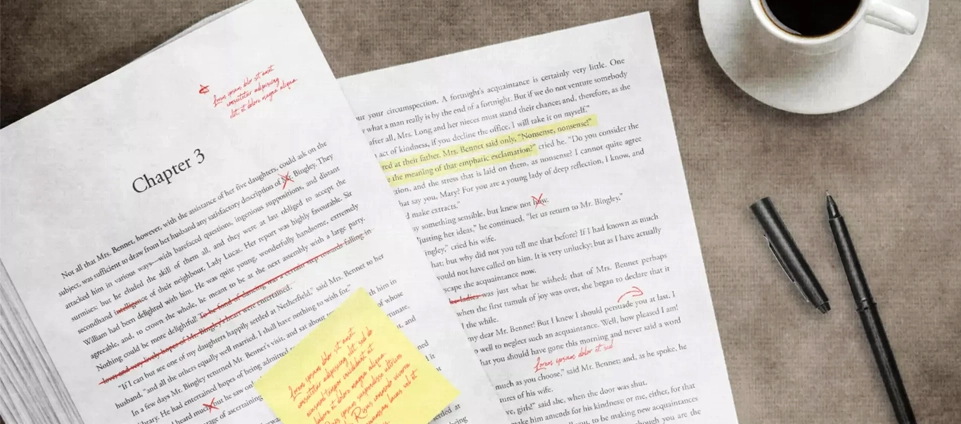 Lorem ipsum dolor sit amet
consectetur adipiscing
dolore magna aliqua.
Chapter 3
Not all that Mrs. Bennet, however, with the assistance of her five daughters, could ask on the
subject, was sufficient to draw from her husband any satisfactory description of Bingley. They
attacked him in various ways—with barefaced questions, ingenious suppositions, and distant
surmises; but he eluded the skill of them all, and they were at last obliged to accept the
secondhand intelligence of their neighbour, Lady Lucas. Her report was highly favourable. Sir
William had been delighted with him. He was quite young, wonderfully handsome, extremely
agreeable, and, to crown the whole, he meant to be at the next assembly with a large party.
Nothing could be more delightful! To be fond of dancing was a certain step towards falling in
love; and very lively hopes of Mr. Bingley's heart were entertained.
"If I can but see one of my daughters happily settled at Netherfield," said Mrs. Bennet to her
husband, "and all the others equally well married, I shall have nothing to wish for."
In a few days Mr. Bingley returned Mr. Bennet's visit, and sat about
library. He had entertained hopes of being admitted
had heard much but he saw only
of ascertaining
him in
of whose
and
Lorem ipsum dolor sit amet
consectetur adipiscing
dolore magna aliqua
your circumspection. A fortnight's acquaintance is certainly very little. One
what a man really is by the end of a fortnight. But if we do not venture somebody
after all, Mrs. Long and her nieces must stand their chance; and, therefore, as she
act of kindness, if you decline the office, I will take it on myself."
at their father. Mrs. Bennet said only, "Nonsense, nonsense!"
the meaning of that emphatic exclamation?" cried he. "Do you consider the
and the stress that is laid on them, as nonsense? I cannot quite agree
say you, Mary? For you are a young lady of deep reflection, I know, and
make extracts."
something sensible, but knew not how.
his ideas," he continued, "let us return to Mr. Bingley."
cried his wife.
but why did not you tell me that before? If I had known as much
not have called on him. It is very unlucky; but as I have actually
escape the acquaintance now.
ladies was just what he wished; that of Mrs. Bennet perhaps
when the first tumult of joy was over, she began to declare that it
the while.
my dear Mr. Bennet! But I knew I should persuade you at last. I
well to neglect such an acquaintance. Well, how pleased I am!
you should have gone this morning and never said a word
Lorem ipsum dolor sit
much as you choose," said Mr. Bennet; and, as he spoke, he
girls!" said she, when the door was shut.
make him amends for his kindness; or me, either, for that
to be making new acquaintances
though you are the